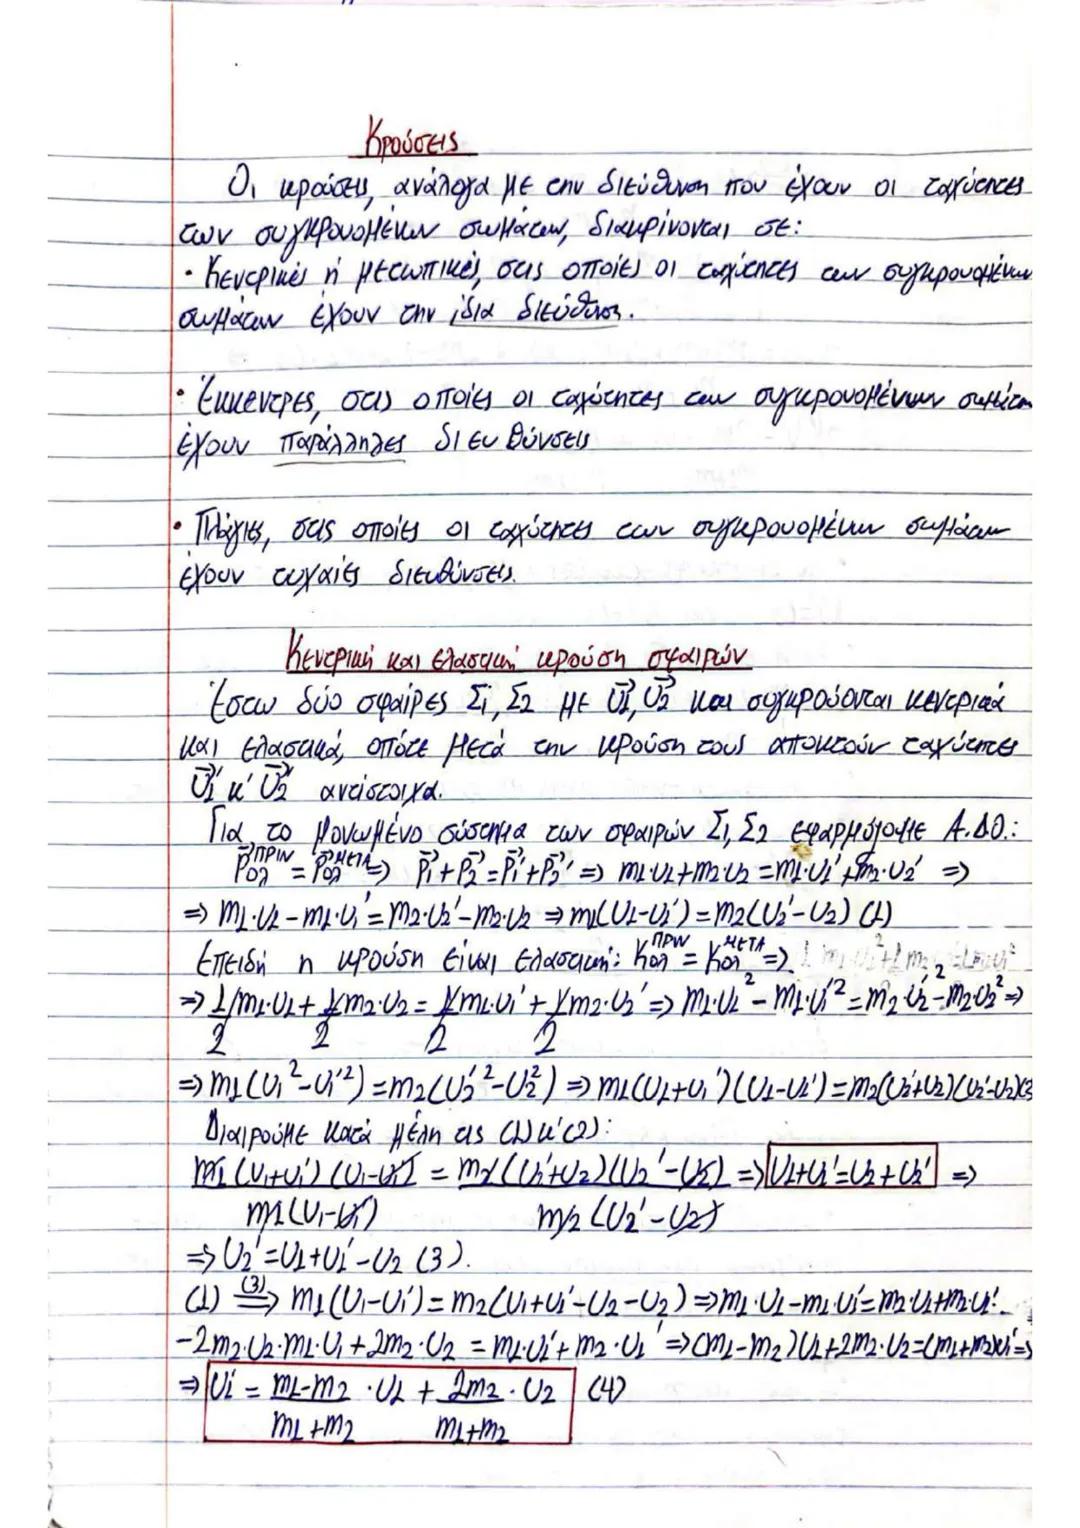 Κρούσεις
Οι κρούσεις, ανάλογα με την διεύθυνση που έχουν οι ταχύτητες
των συγκρουομένων σωμάτων, διακρίνονται σε:
· Κεντρικές ή μετωπικές, στις οποίες οι ταχύτητες των συγκρουομένων
σωμάτων έχουν την ίδια διεύθυνση.
· Έκκεντρες, στις οποίες οι ταχύτητες των συγκρουομένων σωμάτων
έχουν παράλληλες διευθύνσεις
· Πλάγιες, στις οποίες οι ταχύτητες των συγκρουομένων σωμάτων
έχουν τυχαίες διευθύνσεις.
Κεντρική και ελαστική κρούση σφαιρών
Έστω δύο σφαίρες Σ1, Σ2 με υ⃗1, υ⃗2 και συγκρούονται κεντρικά
και ελαστικά, οπότε μετά την κρούση τους αποκτούν ταχύτητες
υ⃗1' κ' υ⃗2' αντίστοιχα.
Για το μονωμένο σύστημα των σφαιρών Σ1, Σ2 εφαρμόζουμε Α.Δ.Ο.:
p⃗ολ^ΠΡΙΝ = p⃗ολ^ΜΕΤΑ ⇒ p⃗1 + p⃗2 = p⃗1' + p⃗2' ⇒ m1·υ1 + m2·υ2 = m1·υ1' + m2·υ2' ⇒
⇒ m1·υ1 - m1·υ1' = m2·υ2' - m2·υ2 ⇒ m1(υ1-υ1') = m2(υ2'-υ2) (1)
Επειδή η κρούση είναι ελαστική: Kολ^ΠΡΙΝ = Kολ^ΜΕΤΑ ⇒
⇒ 1/2 m1·υ1 + 1/2 m2·υ2 = 1/2 m1·υ1' + 1/2 m2·υ2' ⇒ m1·υ1² - m1·υ1'² = m2·υ2'² - m2·υ2² ⇒
⇒ m1(υ1²-υ1'²) = m2(υ2'²-υ2²) ⇒ m1(υ1+υ1')(υ1-υ1') = m2(υ2'+υ2)(υ2'-υ2)
Διαιρούμε κατά μέλη τις (1) κ' (2):
m1(υ1+υ1')(υ1-υ1') = m2(υ2'+υ2)(υ2'-υ2) ⇒ υ1+υ1'=υ2+υ2' ⇒
m1(υ1-υ1') m2(υ2'-υ2)
⇒ υ2' = υ1+υ1'-υ2 (3).
(1) (3)⇒ m1(υ1-υ1') = m2(υ1+υ1'-υ2-υ2) ⇒ m1·υ1-m1·υ1'=m2·υ1+m2·υ1'-
-2m2·υ2·m1·υ1+2m2·υ2 = m1·υ1'+m2·υ1' ⇒ (m1-m2)υ1+2m2·υ2=(m1+m2)υ1' ⇒
⇒ υ1' = m1-m2 · υ1 + 2m2 · υ2 (4)
m1+m2 m1+m2